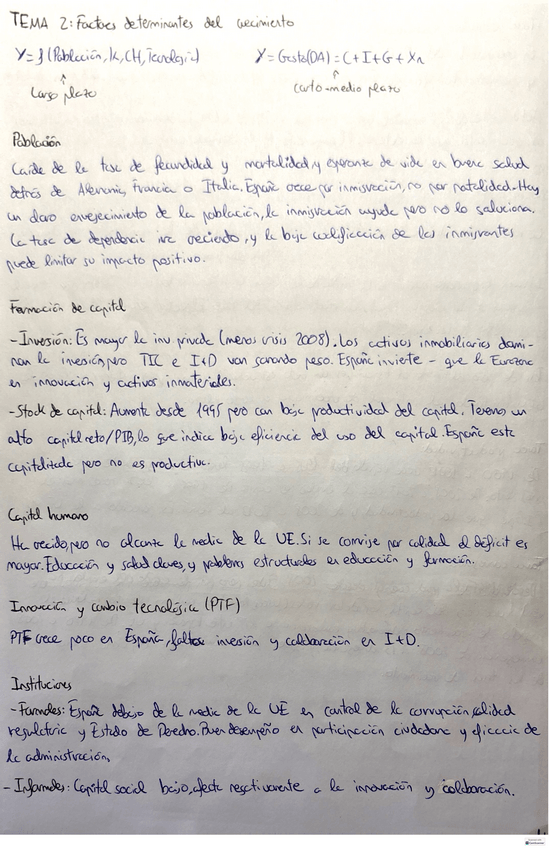 TEMA 2: Factores determinantes del crecimiento
Y = f (Población, K, CH, Tecnología)
Y = Gasto(DA) = C + I + G + Xn
↑
Largo plazo
↑
Corto-medio plazo
Población
Caída de la tasa de fecundidad y mortalidad, y esperanza de vida en buena salud
detrás de Alemania, Francia o Italia. España crece por inmigración, no por natalidad. Hay
un claro envejecimiento de la población, la inmigración ayuda pero no lo soluciona.
La tasa de dependencia irá creciendo, y la baja cualificación de los inmigrantes
puede limitar su impacto positivo.
Formación de capital
- Inversión: Es mayor la inv privada (menos crisis 2008). Los activos inmobiliarios domi-
nan la inversión, pero TIC e I+D van ganando peso. España invierte - que la Eurozona
en innovación y activos inmateriales.
- Stock de capital: Aumenta desde 1995 pero con baja productividad del capital. Tenemos un
alto capital neto/PIB, lo que indica baja eficiencia del uso del capital. España está
capitalizada pero no es productiva.
Capital humano
Ha crecido, pero no alcanza la media de la UE. Si se corrige por calidad el déficit es
mayor. Educación y salud claves, y problemas estructurales en educación y formación.
Innovación y cambio tecnológico (PTF)
PTF crece poco en España, falta inversión y colaboración en I+D.
Instituciones
- Formales: España debajo de la media de la UE en control de la corrupción, calidad
regulatoria y Estado de Derecho. Buen desempeño en participación ciudadana y eficacia de
la administración.
- Informales: Capital social bajo, afecta negativamente a la innovación y colaboración.